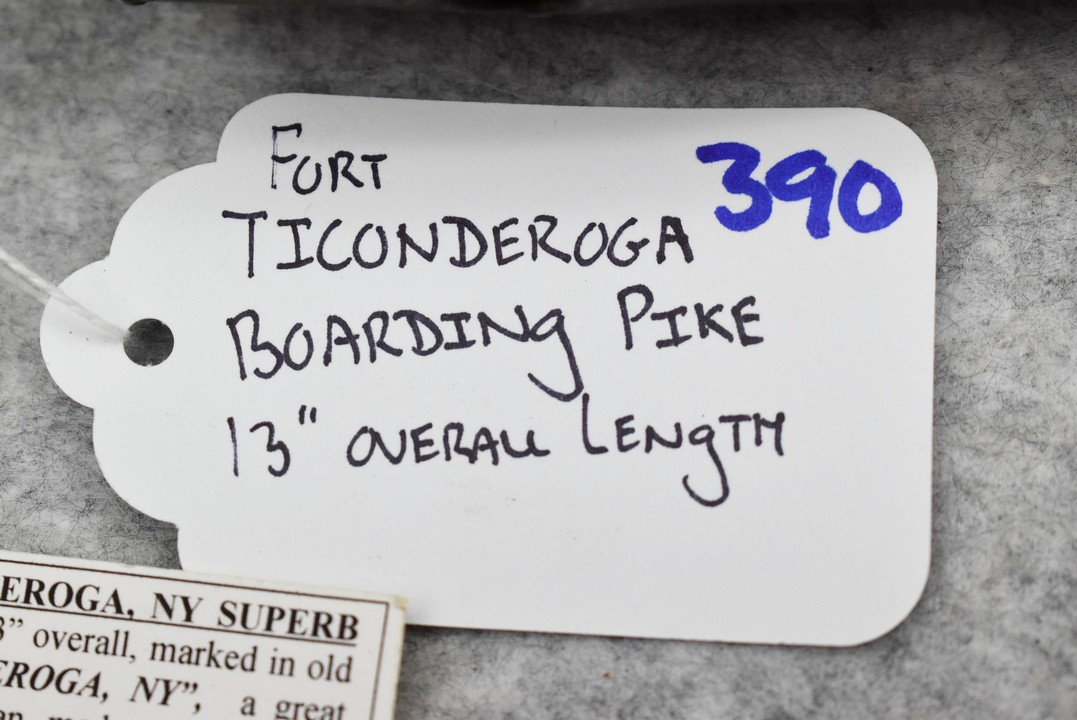 FORT
390
TICONDEROGA
BOARDING PIKE
13" OVERALL LENGTH
EROGA, NY SUPERB
3” overall, marked in old
EROGA, NY”, a great